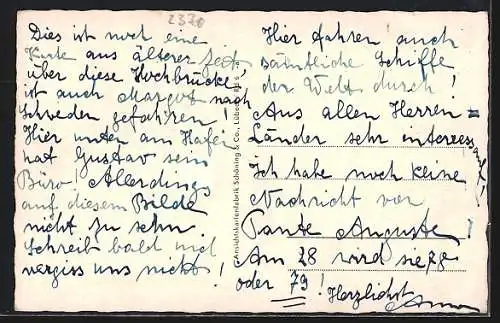 2320
Dies ist noch eine
Karte aus älterer Zeit,
über diese Hochbrücke
ist auch Margot nach
Schweden gefahren!
Hier unten am Hafen
hat Gustav sein
Büro. Allerdings
auf diesem Bilde
nicht zu sehn.
Schreib bald und
vergiss uns nicht!
Ansichtskartenfabrik Schöning & Co., Lübeck
Hier fahren auch
sämtliche Schiffe
der Welt durch!
Aus allen Herren=
Länder sehr interess
ant!
Ich habe noch keine
Nachricht von
Tante Auguste!
Am 28 wird sie 78
oder 79! Herzlichst